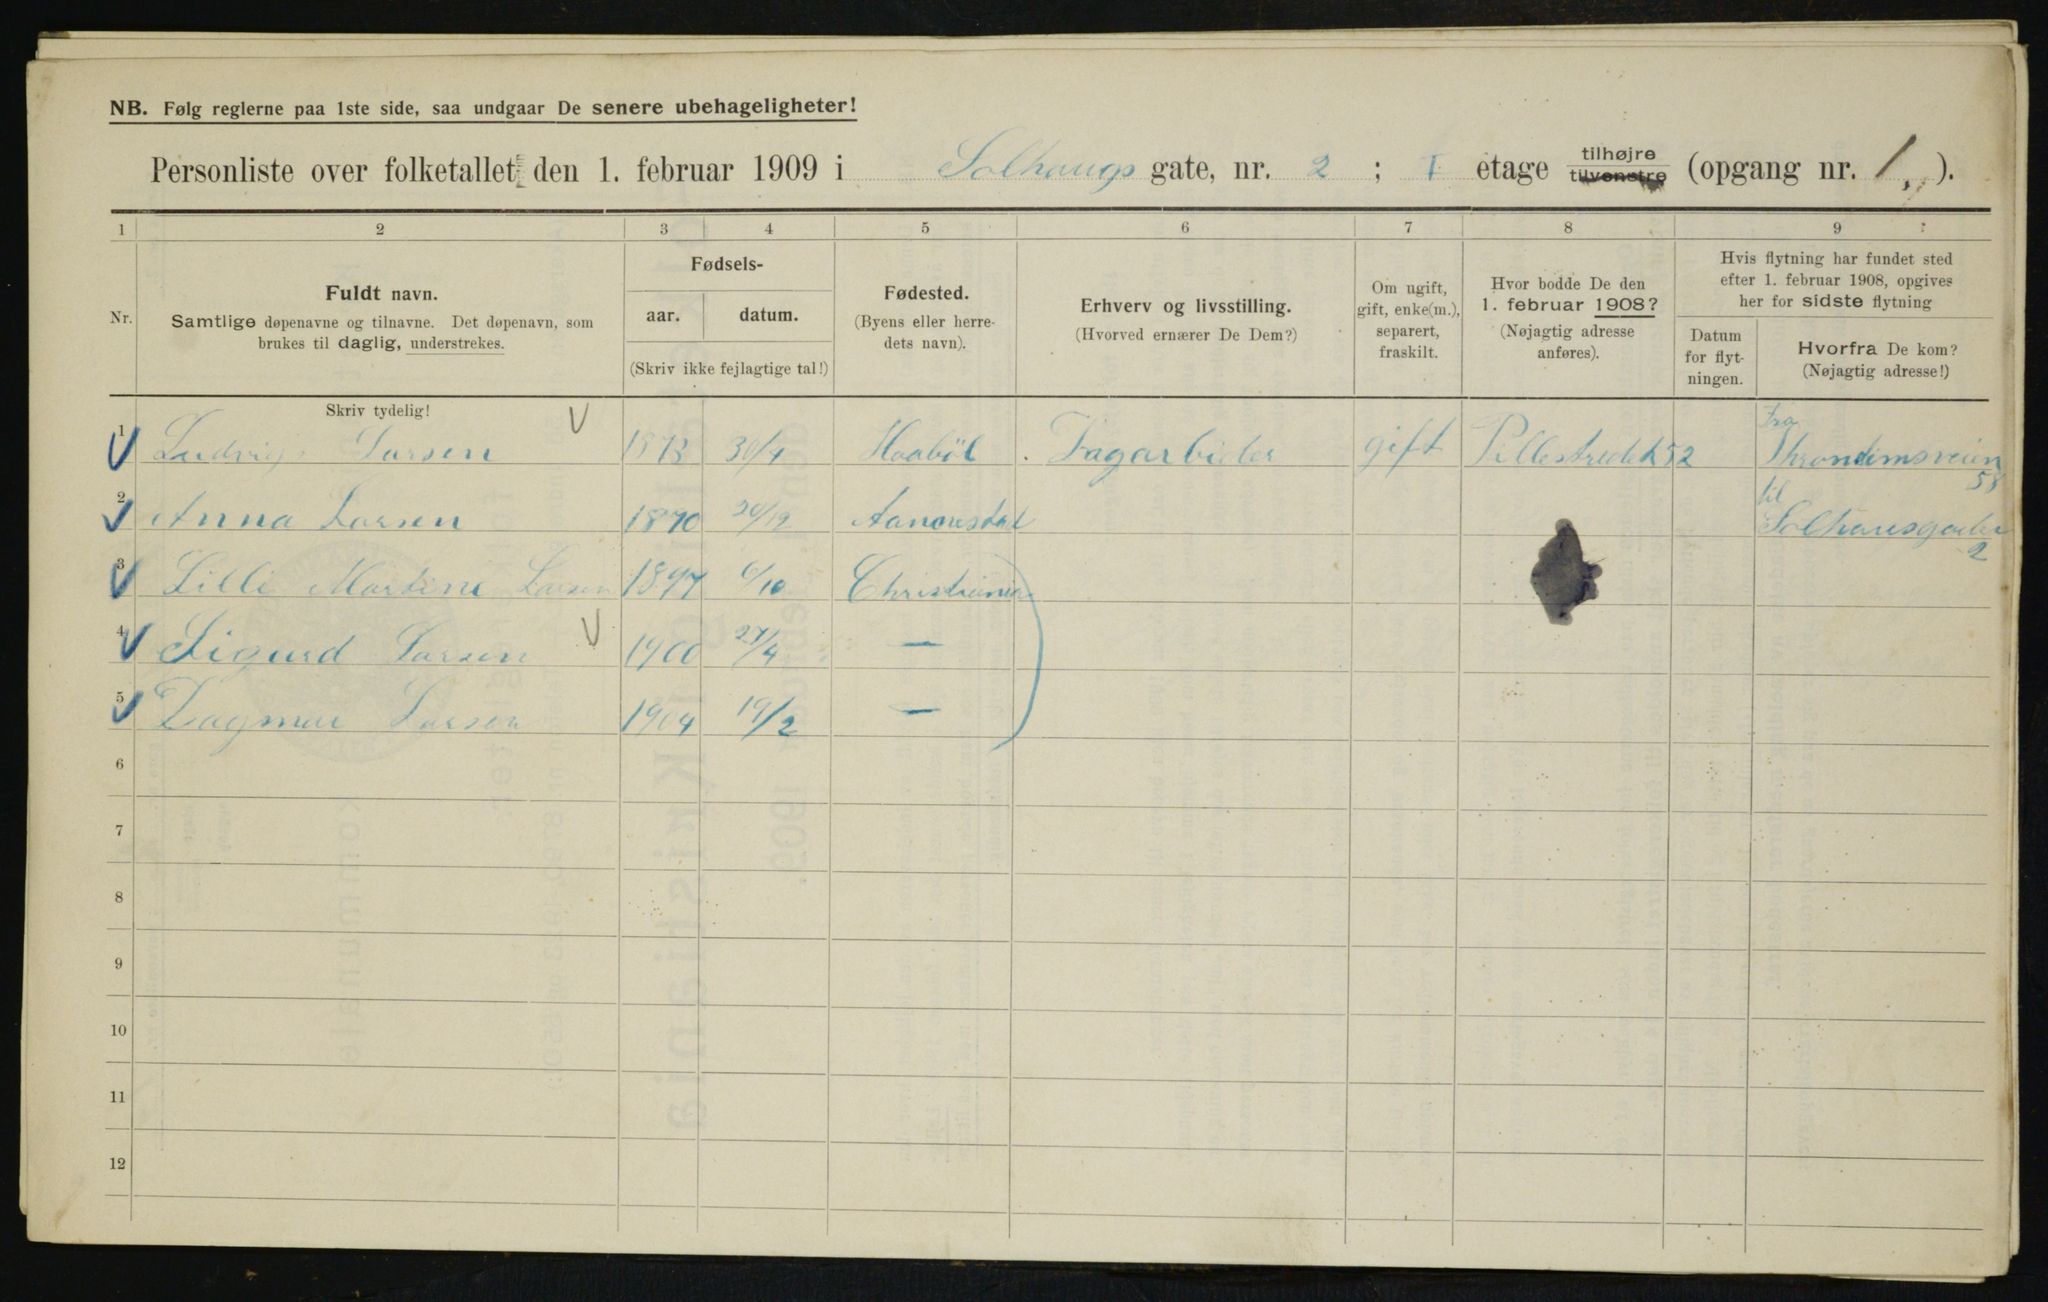 NB. Følg reglerne paa 1ste side, saa undgaar De senere ubehageligheter!
Personliste over folketallet den 1. februar 1909 i Solhaugs gate, nr. 2 ; I etage tilhøjre tilvenstre (opgang nr. 1, ).
1 2 3 4 5 6 7 8 9
Nr.
Fuldt navn.
Samtlige døpenavne og tilnavne. Det døpenavn, som
brukes til daglig, understrekes.
Fødsels-
aar. datum.
(Skriv ikke fejlagtige tal!)
Fødested.
(Byens eller herre-
dets navn).
Erhverv og livsstilling.
(Hvorved ernærer De Dem?)
Om ugift,
gift, enke(m.),
separert,
fraskilt.
Hvor bodde De den
1. februar 1908?
(Nøjagtig adresse
anføres).
Hvis flytning har fundet sted
efter 1. februar 1908, opgives
her for sidste flytning
Datum
for flyt-
ningen.
Hvorfra De kom?
(Nøjagtig adresse!)
Skriv tydelig!
1 Ludvig Larsen 1873 30/4 Haabøl Fagarbider gift Pillestredet 52 Fra Throndimsveien 58
2 Anna Larsen 1870 20/12 til Solhausgaden 2
3 Lilli Martine Larsen 1897 6/10 Christiania
4 Sigurd Larsen 1900 27/4 —
5 Dagmar Larsen 1904 19/2 —
6
7
8
9
10
11
12